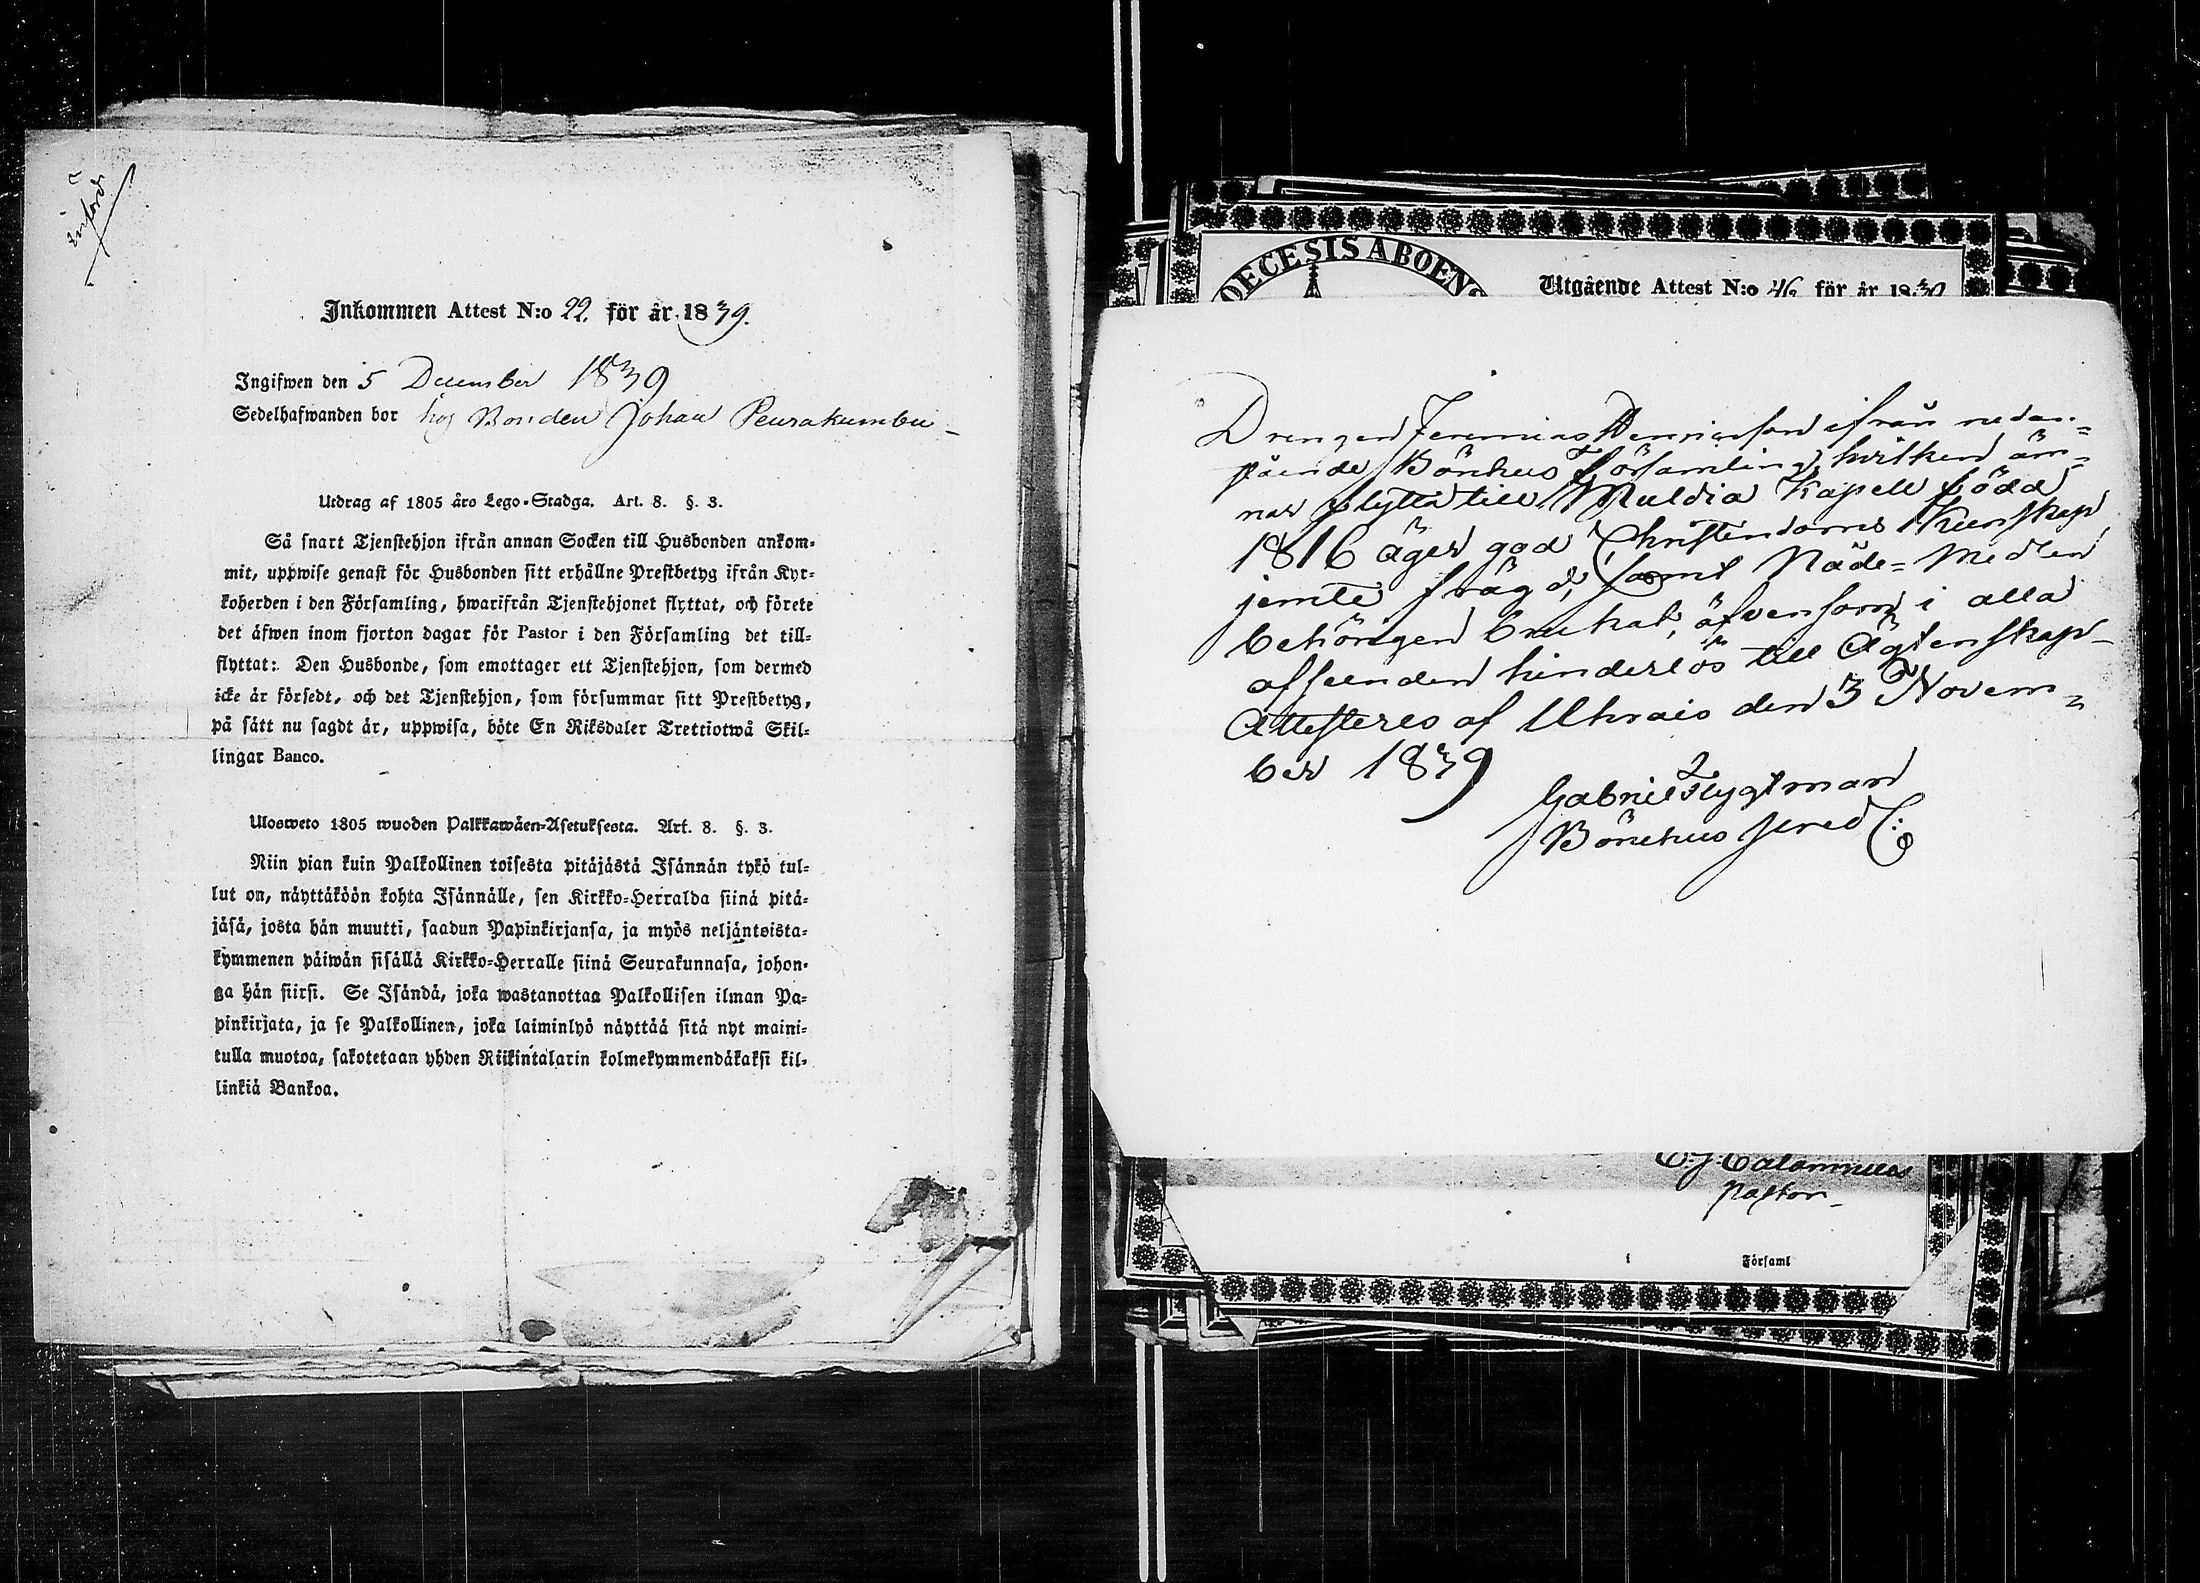 Införd
Inkommen Attest N:o 22. för år 1839.
Ingifwen den 5 December 1839
Sedelhafwanden bor hos Bonden Johan Peurakumbu
Utdrag af 1805 års Lego-Stadga. Art. 8. §. 3.
Så snart Tjenstehjon ifrån annan Socken till Husbonden ankom-
mit, uppwise genast för Husbonden sitt erhållne Prestbetyg ifrån Kyr-
koherden i den Församling, hwarifrån Tjenstehjonet flyttat, och förete
det äfwen inom fjorton dagar för Pastor i den Församling det till-
flyttat: Den Husbonde, som emottager ett Tjenstehjon, som dermed
icke är försedt, och det Tjenstehjon, som försummar sitt Prestbetyg,
på sätt nu sagdt är, uppwisa, böte En Riksdaler Trettiotwå Skil-
lingar Banco.
Ulosweto 1805 wuoden Palkkawäen-Asetuksesta. Art. 8. §. 3.
Niin pian kuin Palkollinen toisesta pitäjästä Isännän tykö tul-
lut on, näyttäköön kohta Isännälle, sen Kirkko-Herralda siinä pitä-
jäsä, josta hän muutti, saadun Papinkirjansa, ja myös neljäntoista-
kymmenen päiwän sisällä Kirkko-Herralle siinä Seurakunnasa, johon-
ga hän siirsi. Se Isändä, joka wastanottaa Palkollisen ilman Pa-
pinkirjata, ja se Palkollinen, joka laiminlyö näyttää sitä nyt maini-
tulla muotoa, sakotetaan yhden Riikintalarin kolmekymmendäkaksi kil-
linkiä Bankoa.
DECESIS ABOENS
Utgående Attest N:o för år 18
Drengen Jeremias ifrån nedan-
stående Bönhus Församling, hvilken äm-
nar flytta till Muldia Kapell född
1816 äger god Christendoms Kunskap
jemte frägd, samt Nåde-Medlen
behörigen brukat, äfvensom i alla
afseenden hinderlös till Ägtenskap
Attesteres af Uhrais den 3 Novem-
ber 1839
Gabriel Flygtman
Bönehus pred
Calamnius
Pastor
i Församl